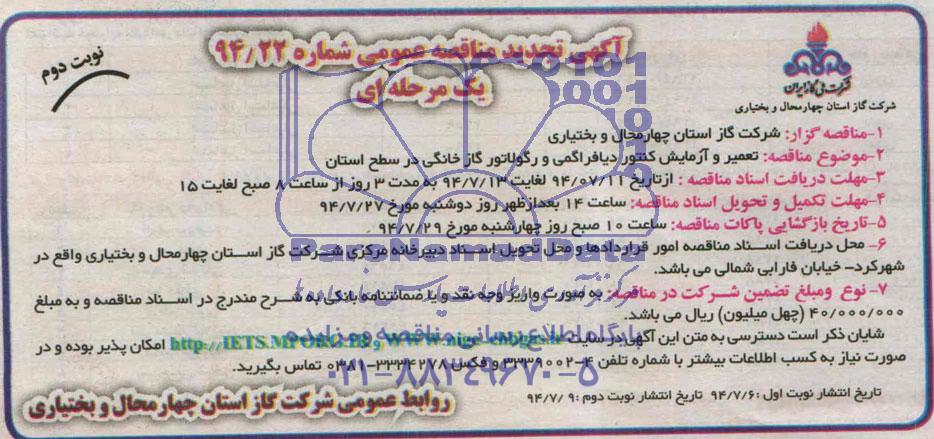 آگهی تجدید مناقصه عمومی شماره ۹۴/۲۲
یک مرحله ای
نوبت دوم
شرکت ملی گاز ایران
شرکت گاز استان چهارمحال و بختیاری
۱-مناقصه گزار: شرکت گاز استان چهارمحال و بختیاری
۲-موضوع مناقصه: تعمیر و آزمایش کنتور دیافراگمی و رگولاتور گاز خانگی در سطح استان
۳-مهلت دریافت اسناد مناقصه : ازتاریخ ۹۴/۰۷/۱۱ لغایت ۹۴/۷/۱۳ به مدت ۳ روز از ساعت ۸ صبح لغایت ۱۵
۴-مهلت تکمیل و تحویل اسناد مناقصه: ساعت ۱۴ بعدازظهر روز دوشنبه مورخ ۹۴/۷/۲۷
۵-تاریخ بازگشایی پاکات مناقصه: ساعت ۱۰ صبح روز چهارشنبه مورخ ۹۴/۷/۲۹ .
۶- محل دریافت اسناد مناقصه امور قراردادها و محل تحویل اسناد دبیرخانه مرکزی شرکت گاز استان چهارمحال و بختیاری واقع در
شهرکرد- خیابان فارابی شمالی می باشد.
۷- نوع ومبلغ تضمین شرکت در مناقصه: به صورت واریز وجه نقد و یا ضمانتنامه بانکی به شرح مندرج در اسناد مناقصه و به مبلغ
۴۰/۰۰۰/۰۰۰ (چهل میلیون) ریال می باشد.
شایان ذکر است دسترسی به متن این آگهی در سایت امکان پذیر بوده و در
صورت نیاز به کسب اطلاعات بیشتر با شماره تلفن ۴-۳۲۳۹۰۰۲ و فکس ۳۳۳۴۲۷۸-۰۳۸۱ تماس بگیرید.
تاریخ انتشار نوبت اول :۹۴/۷/۶ تاریخ انتشار نوبت دوم :۹۴/۷/۹
روابط عمومی شرکت گاز استان چهارمحال و بختیاری
پایگاه اطلاع رسانی مناقصه و مزایده
۰۲۱-۸۸۳۴۹۶۷۰-۵